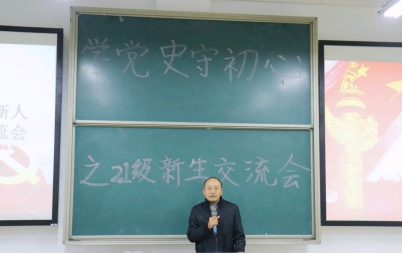 学党史守初心
之21级新生交流会
新人
流会